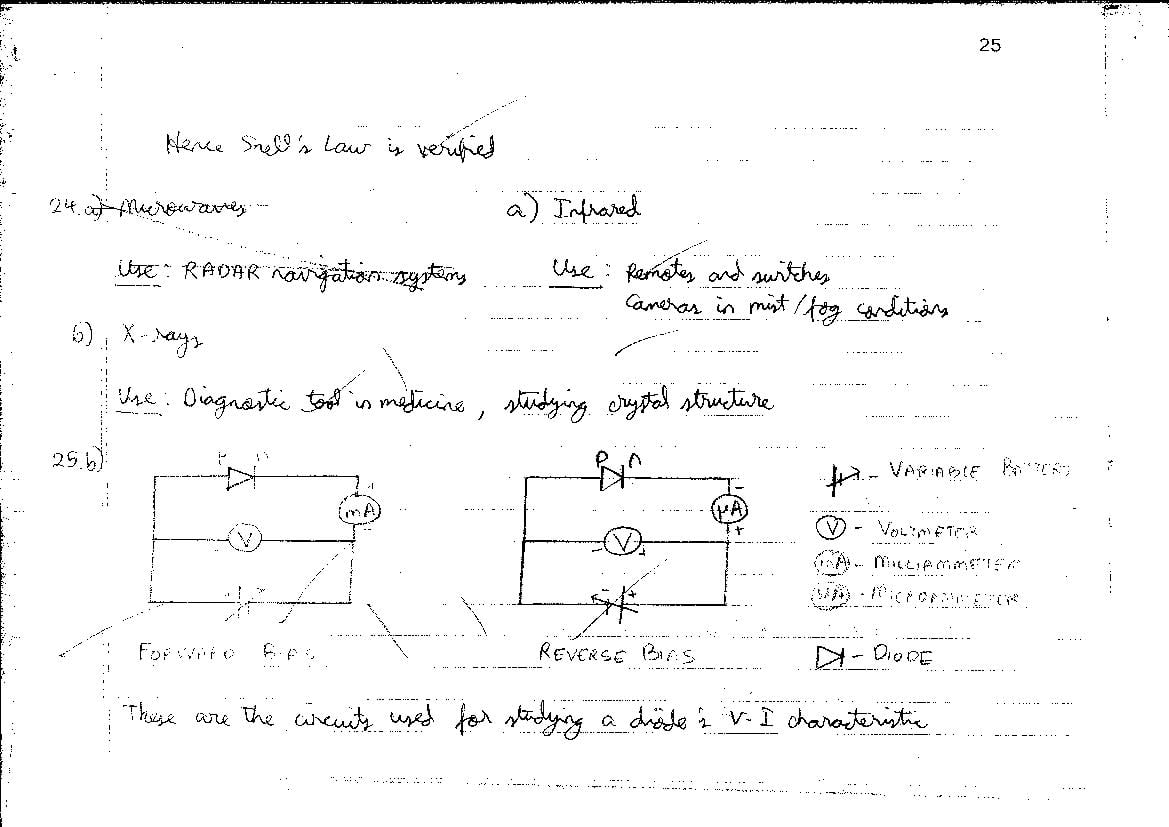 25
Hence Snell's Law is verified
24. a) Microwaves
a) Infrared
Use: RADAR navigation systems
Use: Remotes and switches
Cameras in mist/fog conditions
b) X-rays
Use: Diagnostic tool in medicine, studying crystal structure
25. b)
P n
mA
V
+
FORWARD BIAS
P n
-
μA
+
- V +
- +
REVERSE BIAS
- VARIABLE BATTERY
V - VOLTMETER
mA - MILLIAMMETER
μA - MICROAMMETER
- DIODE
These are the circuits used for studying a diode's V-I characteristic